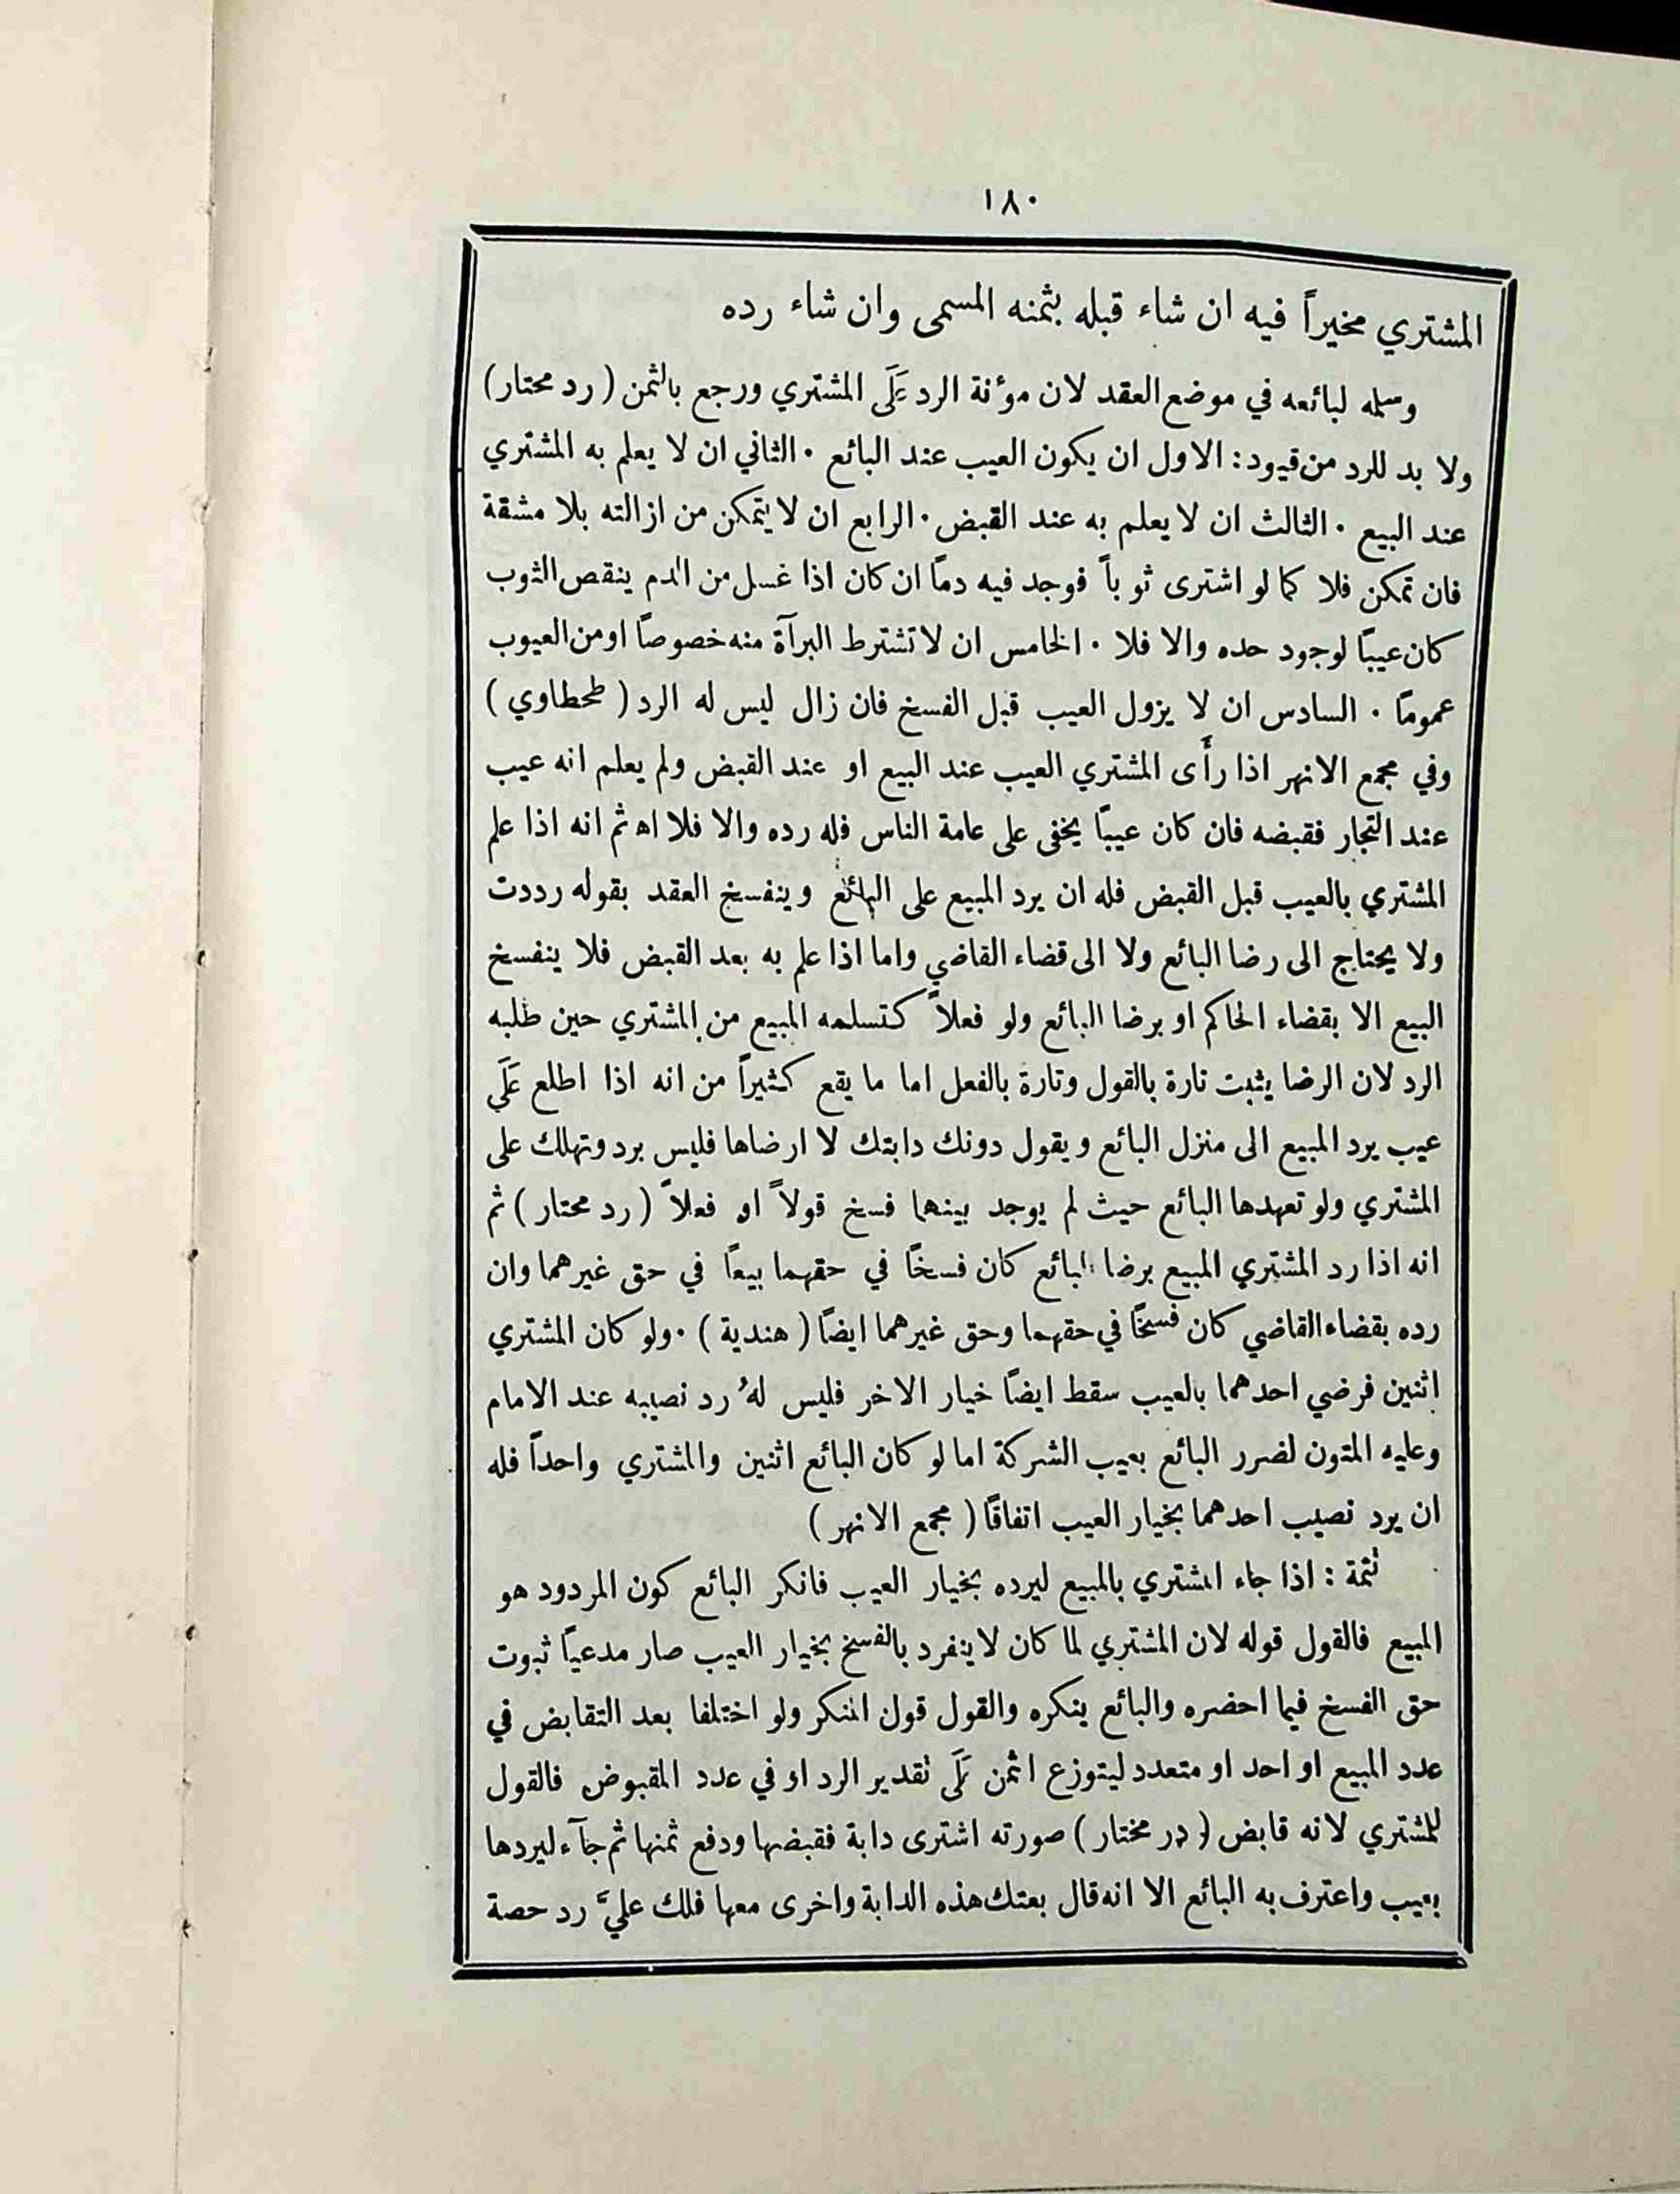 ١٨٠
المشتري مخيراً فيه ان شاء قبله بثمنه المسمى وان شاء رده
وسلمه لبائعه في موضع العقد لان موٴنة الرد عَلَى المشتري ورجع بالثمن ( رد محتار )
ولا بد للرد من قيود : الاول ان يكون العيب عند البائع ٠ الثاني ان لا يعلم به المشتري
عند البيع ٠ الثالث ان لا يعلم به عند القبض ٠ الرابع ان لا يتمكن من ازالته بلا مشقة
فان تمكن فلا كما لو اشترى ثوباً فوجد فيه دماً ان كان اذا غسل من الدم ينقص الثوب
كان عيباً لوجود حده والا فلا ٠ الخامس ان لا تشترط البرآة منه خصوصاً او من العيوب
عموماً ٠ السادس ان لا يزول العيب قبل الفسخ فان زال ليس له الرد ( طحطاوي )
وفي مجمع الانهر اذا رأى المشتري العيب عند البيع او عند القبض ولم يعلم انه عيب
عند التجار فقبضه فان كان عيباً يخفى على عامة الناس فله رده والا فلا اه ثم انه اذا علم
المشتري بالعيب قبل القبض فله ان يرد المبيع على البائع وينفسخ العقد بقوله رددت
ولا يحتاج الى رضا البائع ولا الى قضاء القاضي واما اذا علم به بعد القبض فلا ينفسخ
البيع الا بقضاء الحاكم او برضا البائع ولو فعلاً كتسلمه المبيع من المشتري حين طلبه
الرد لان الرضا يثبت تارة بالقول وتارة بالفعل اما ما يقع كثيراً من انه اذا اطلع عَلَى
عيب يرد المبيع الى منزل البائع ويقول دونك دابتك لا ارضاها فليس برد وتهلك على
المشتري ولو تعهدها البائع حيث لم يوجد بينهما فسخ قولاً او فعلاً ( رد محتار ) ثم
انه اذا رد المشتري المبيع برضا البائع كان فسخاً في حقهما بيعاً في حق غيرهما وان
رده بقضاء القاضي كان فسخاً في حقهما وحق غيرهما ايضاً ( هندية ) ٠ ولو كان المشتري
اثنين فرضي احدهما بالعيب سقط ايضاً خيار الاخر فليس لهُ رد نصيبه عند الامام
وعليه المتون لضرر البائع بعيب الشركة اما لو كان البائع اثنين والمشتري واحداً فله
ان يرد نصيب احدهما بخيار العيب اتفاقاً ( مجمع الانهر )
تتمة : اذا جاء المشتري بالمبيع ليرده بخيار العيب فانكر البائع كون المردود هو
المبيع فالقول قوله لان المشتري لما كان لا ينفرد بالفسخ بخيار العيب صار مدعياً ثبوت
حق الفسخ فيما احضره والبائع ينكره والقول قول المنكر ولو اختلفا بعد التقابض في
عدد المبيع او احد او متعدد ليتوزع الثمن عَلَى تقدير الرد او في عدد المقبوض فالقول
للمشتري لانه قابض ( در مختار ) صورته اشترى دابة فقبضها ودفع ثمنها ثم جآء ليردها
بعيب واعترف به البائع الا انه قال بعتك هذه الدابة واخرى معها فلك عليَّ رد حصة